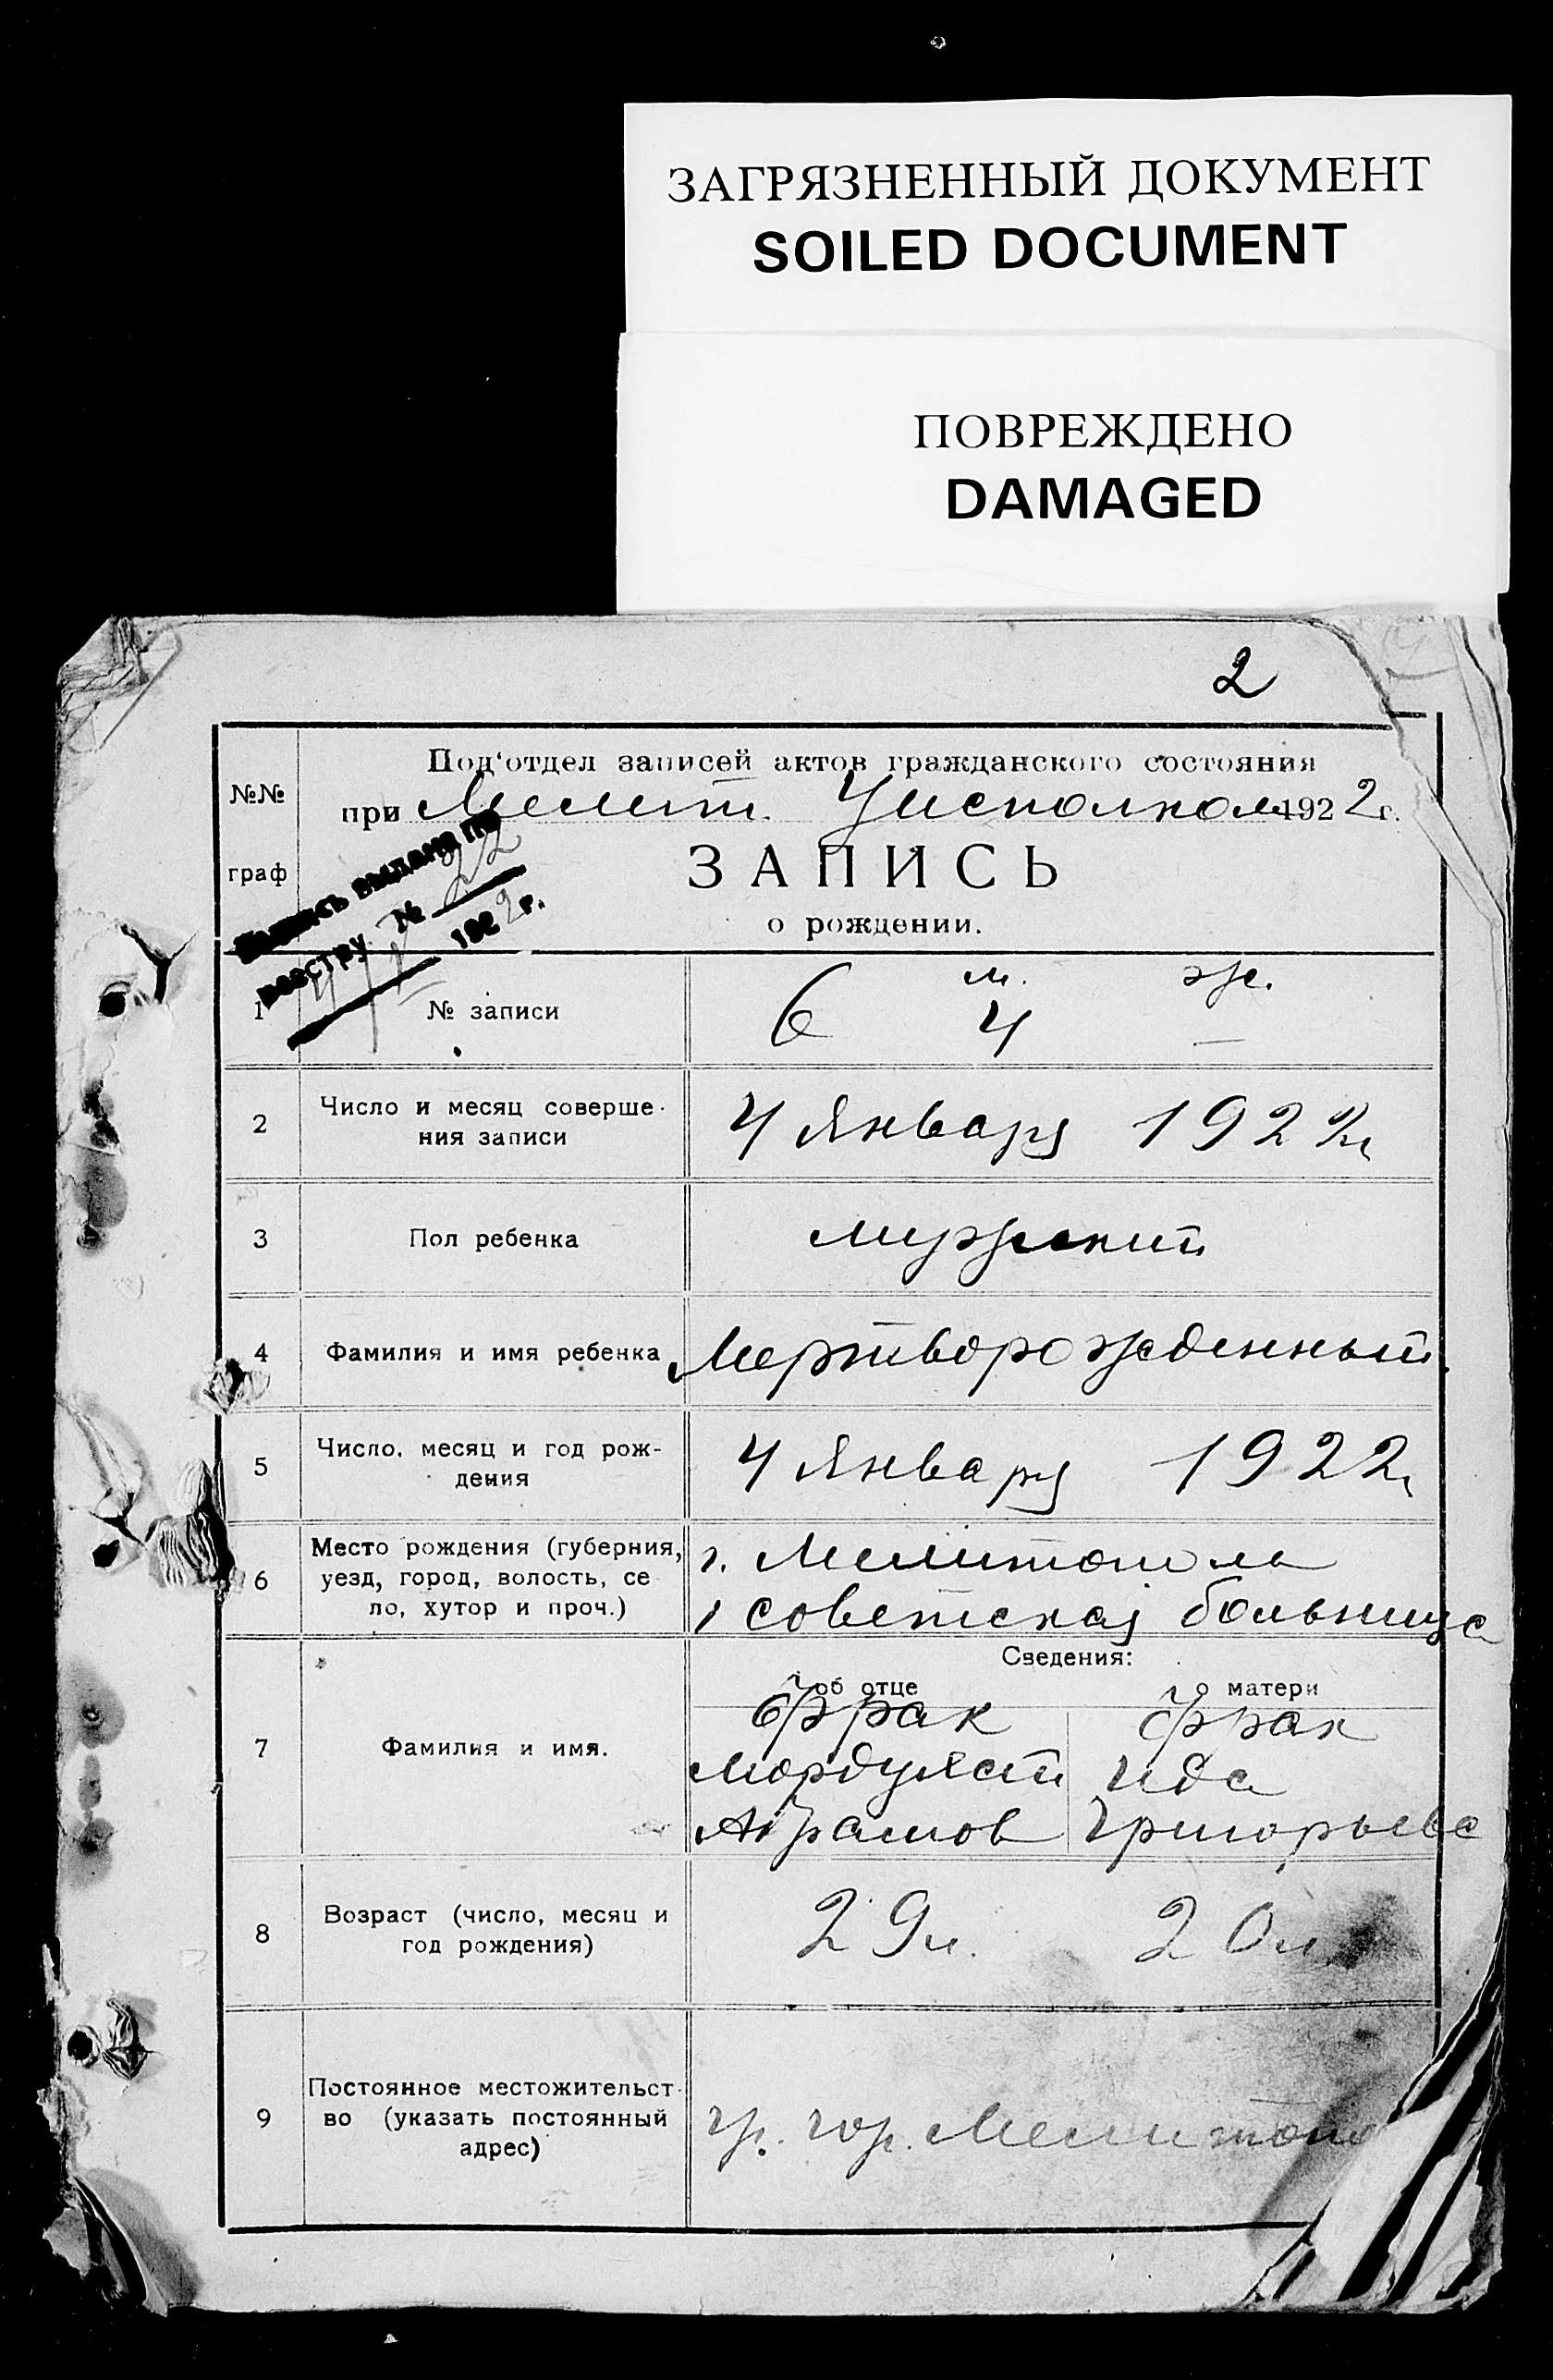 ЗАГРЯЗНЕННЫЙ ДОКУМЕНТ
SOILED DOCUMENT
ПОВРЕЖДЕНО
DAMAGED
2
№№
граф
Под‘отдел записей актов гражданского состояния
при Мелит. Уисполком 1922 г.
ЗАПИСЬ
о рождении.
выдана по
реестру № 22
1922 г.
м. ж.
1 № записи 6 4 —
2 Число и месяц соверше-
ния записи
4 Января 1922 г
3 Пол ребенка мужский
4 Фамилия и имя ребенка Мертворожденный.
5 Число, месяц и год рож-
дения
4 Января 1922 г
6 Место рождения (губерния,
уезд, город, волость, се
ло, хутор и проч.)
г. Мелитополь
1 советская больница
Сведения:
об отце о матери
7 Фамилия и имя.
Фрак Фрак
Ида
Абрамов Григорьева
8 Возраст (число, месяц и
год рождения)
29 л. 20 л
9 Постоянное местожительст-
во (указать постоянный
адрес)
гр. гор. Мелитопо